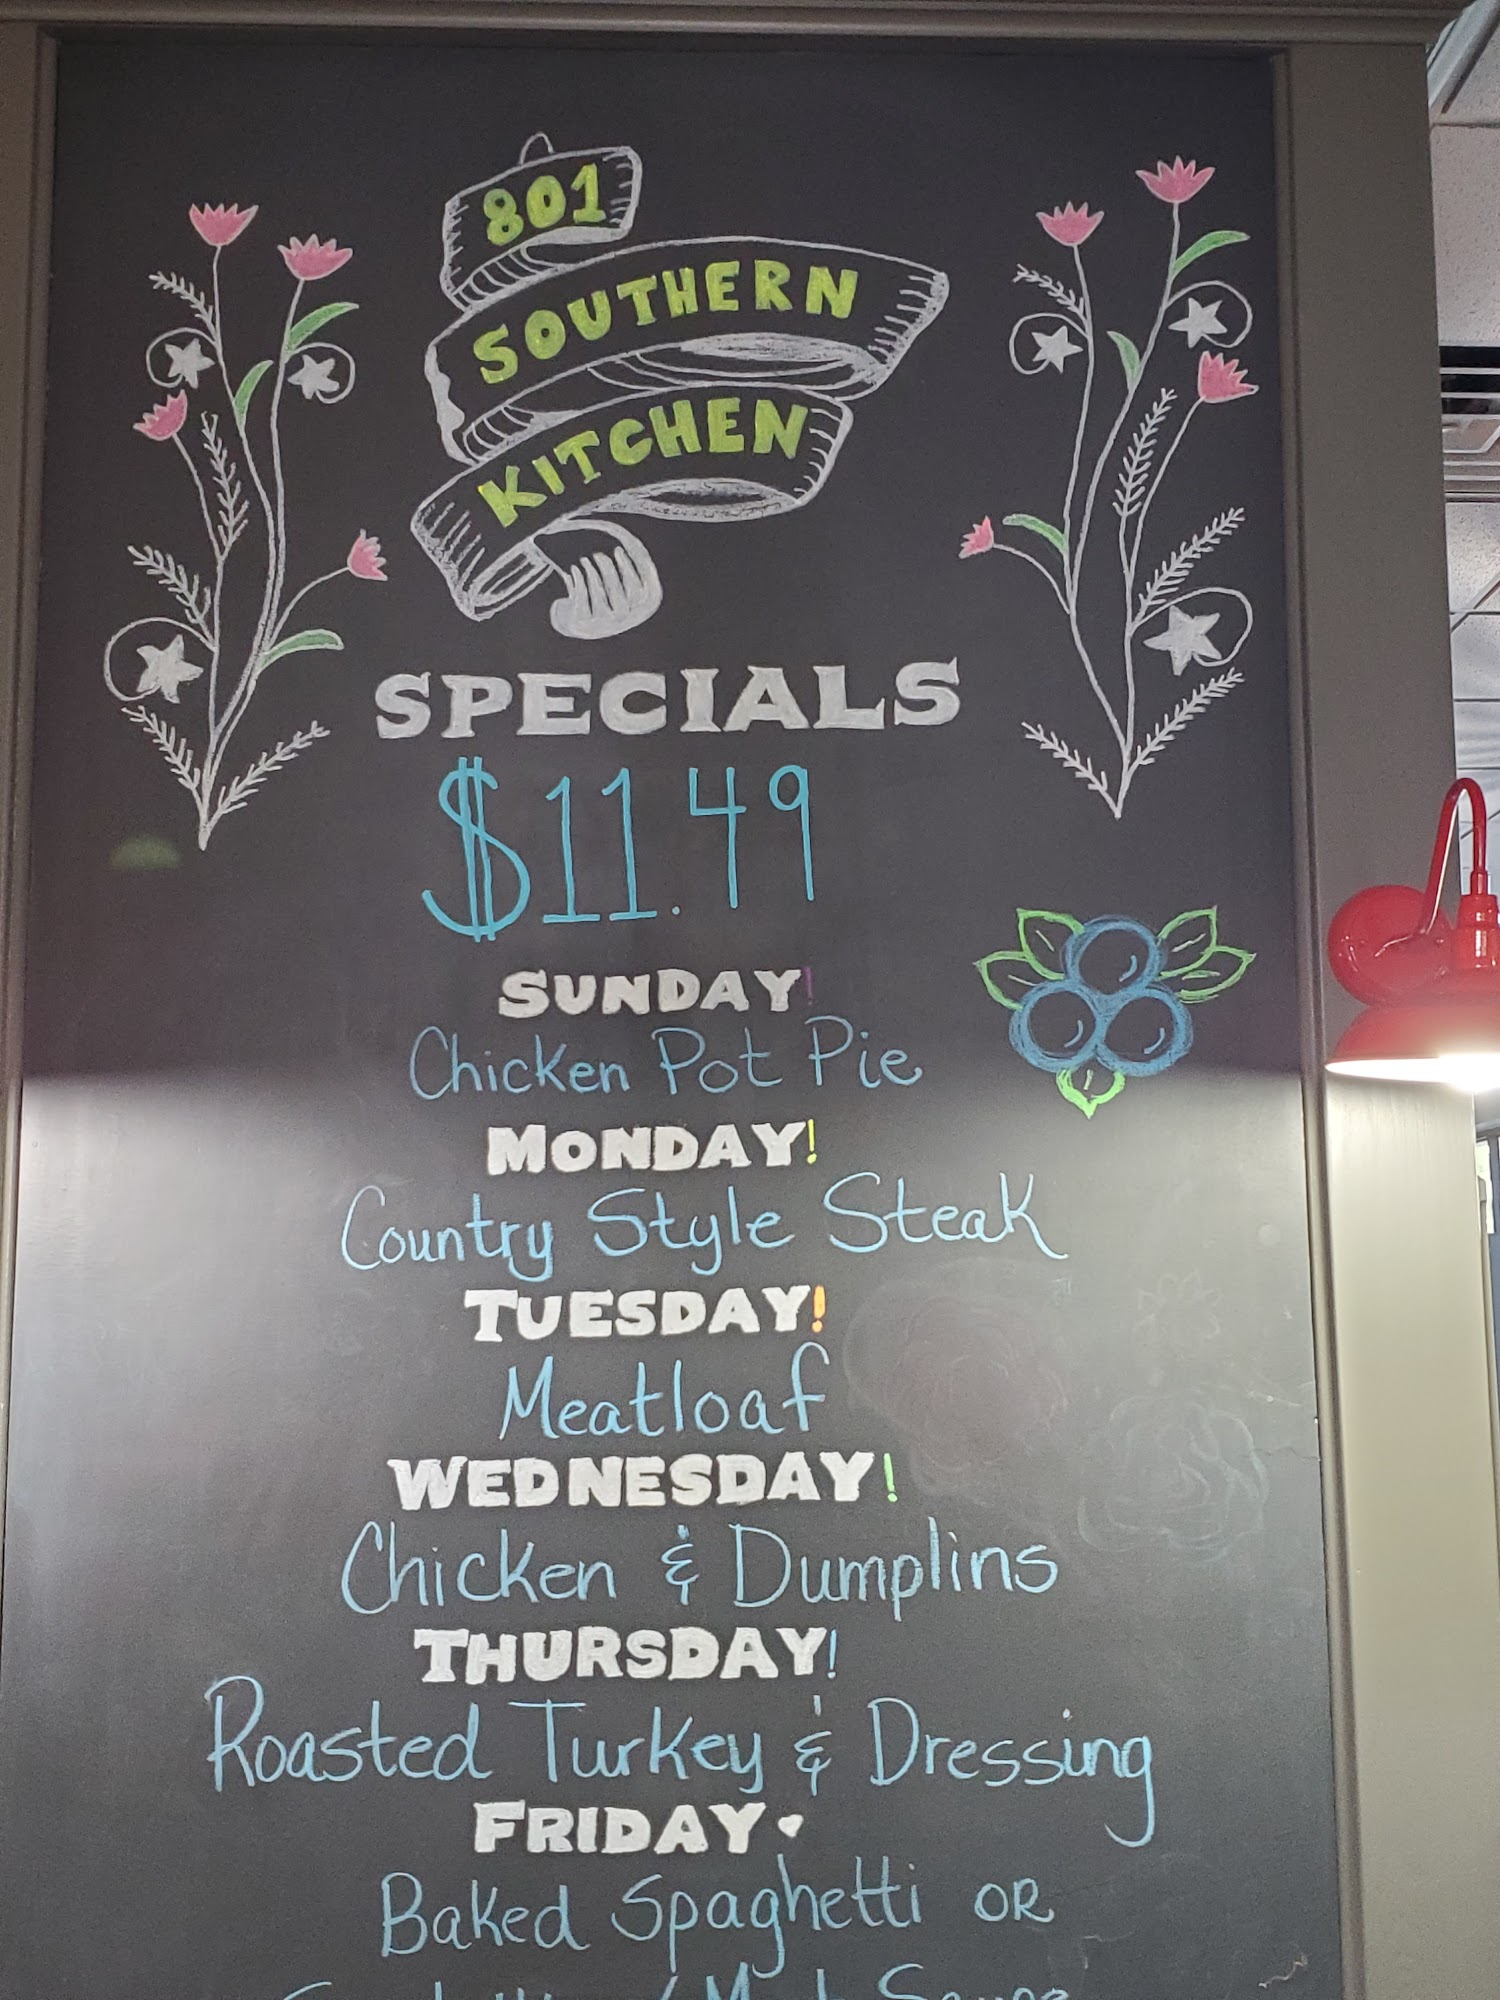 801
SOUTHERN
KITCHEN
SPECIALS
$11.49
SUNDAY!
Chicken Pot Pie
MONDAY!
Country Style Steak
TUESDAY!
Meatloaf
WEDNESDAY!
Chicken & Dumplins
THURSDAY!
Roasted Turkey & Dressing
FRIDAY
Baked Spaghetti OR